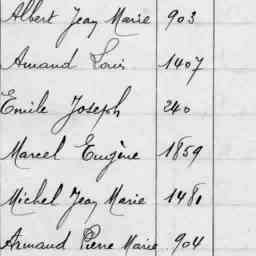 Albert Jean Marie 903
Armand Louis 1407
Emile Joseph 240
Marcel Eugène 1859
Michel Jean Marie 1481
Armand Pierre Marie 904